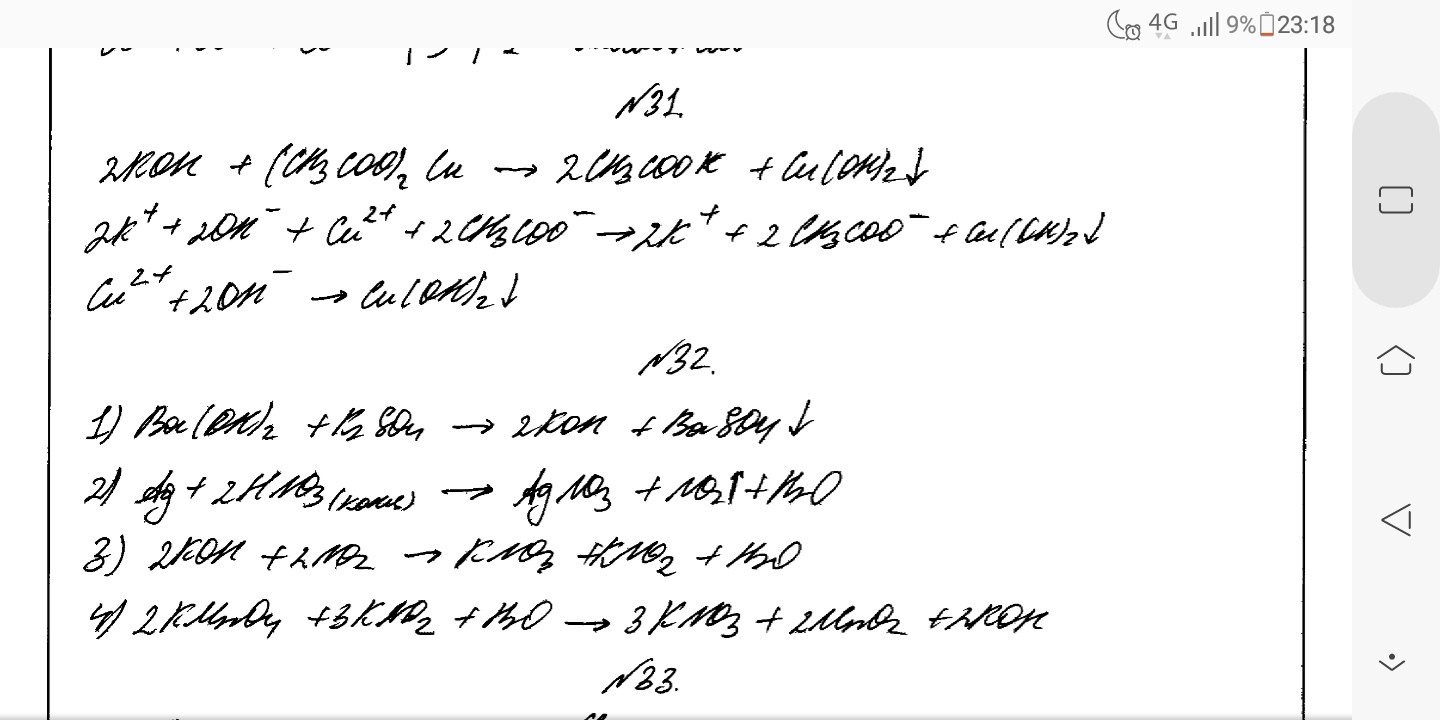 4G 9% 23:18
N31.
2KOH + (CH3COO)2 Cu → 2CH3COOK + Cu(OH)2↓
2K⁺ + 2OH⁻ + Cu²⁺ + 2CH3COO⁻ → 2K⁺ + 2CH3COO⁻ + Cu(OH)2↓
Cu²⁺ + 2OH⁻ → Cu(OH)2↓
N32.
1) Ba(OH)2 + K2SO4 → 2KOH + BaSO4↓
2) Ag + 2HNO3(конц) → AgNO3 + NO2↑ + H2O
3) 2KOH + 2NO2 → KNO3 + KNO2 + H2O
4) 2KMnO4 + 3KNO2 + H2O → 3KNO3 + 2MnO2 + 2KOH
N33.